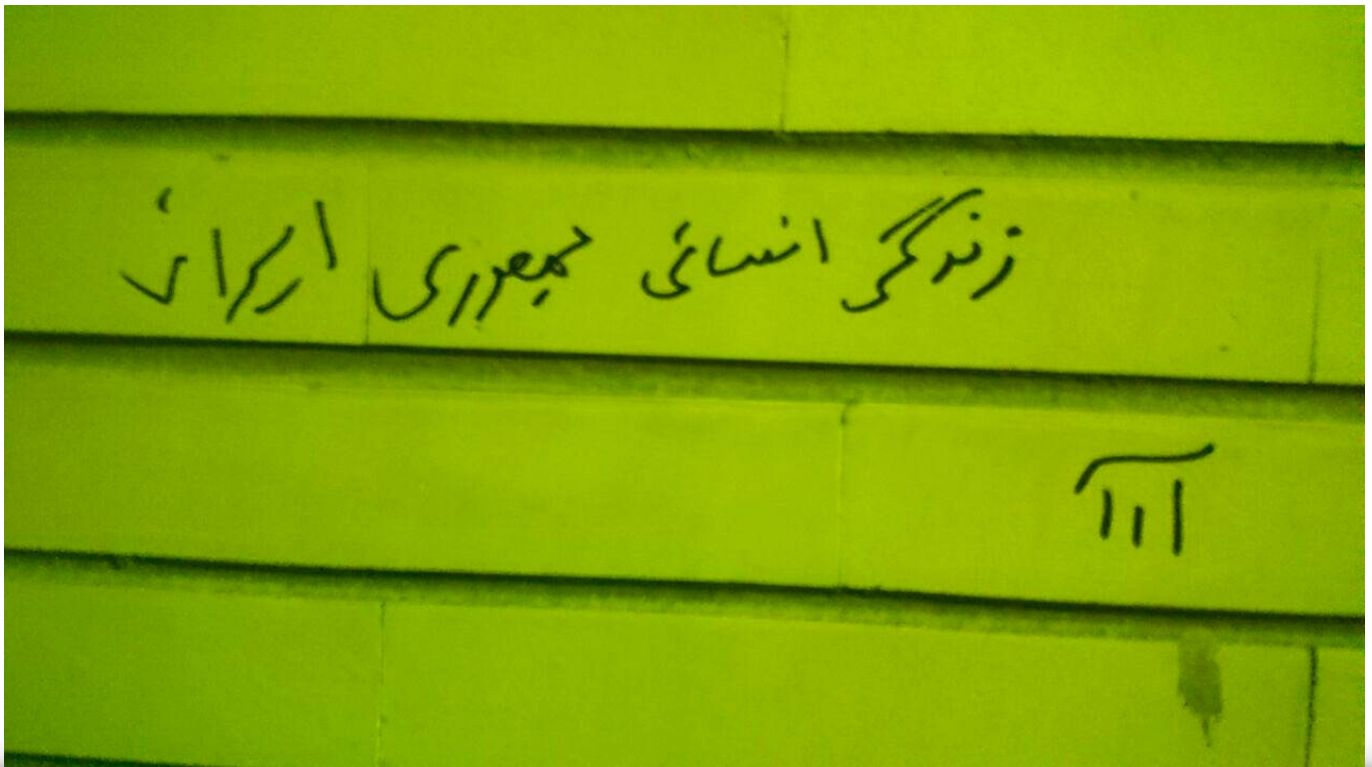 زندگی انسانی جمهوری ایرانی